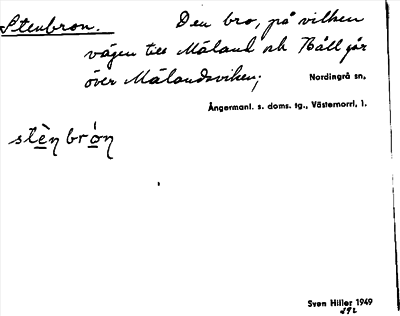 Stenbron. Den bro, på vilken
vägen till Måland och Båll går
över Målandsviken;
Nordingrå sn,
Ångermanl. s. doms. tg., Västernorrl. l.
stè̱n brò̱n
Sven Hiller 1949